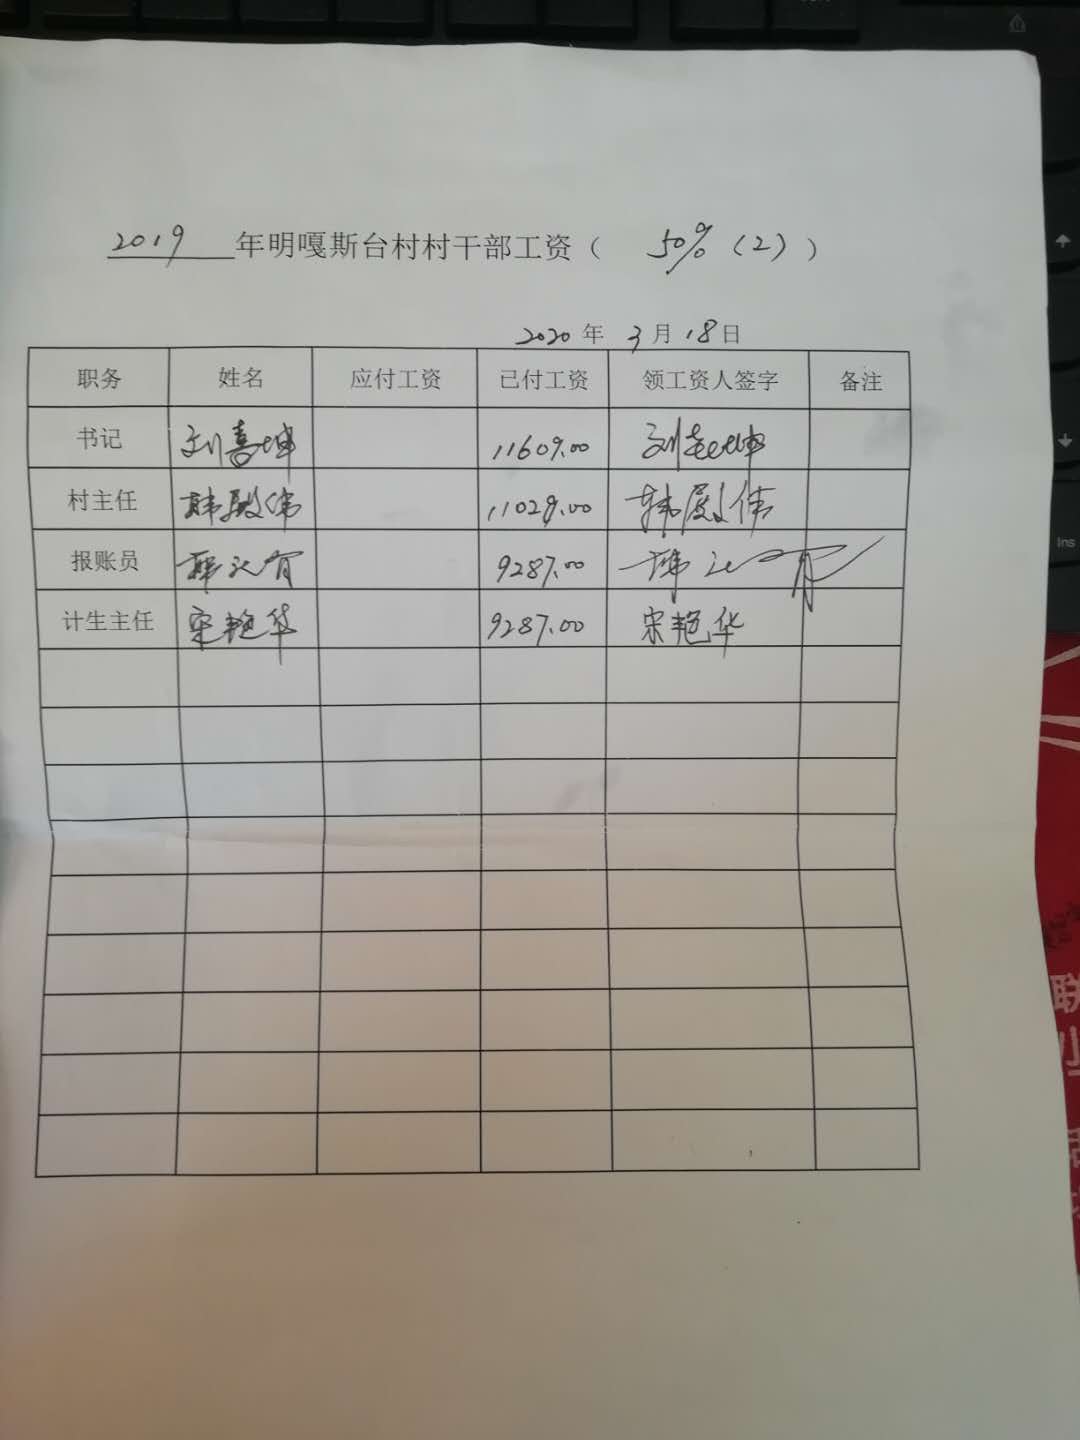 2019 年明嘎斯台村村干部工资（ 50%（2））
2020 年 3 月 18 日
职务 姓名 应付工资 已付工资 领工资人签字 备注
书记 刘喜坤 11609.00 刘喜坤
村主任 韩殿伟 11029.00 韩殿伟
报账员 9287.00
计生主任 宋艳华 9287.00 宋艳华
Ins
联
小